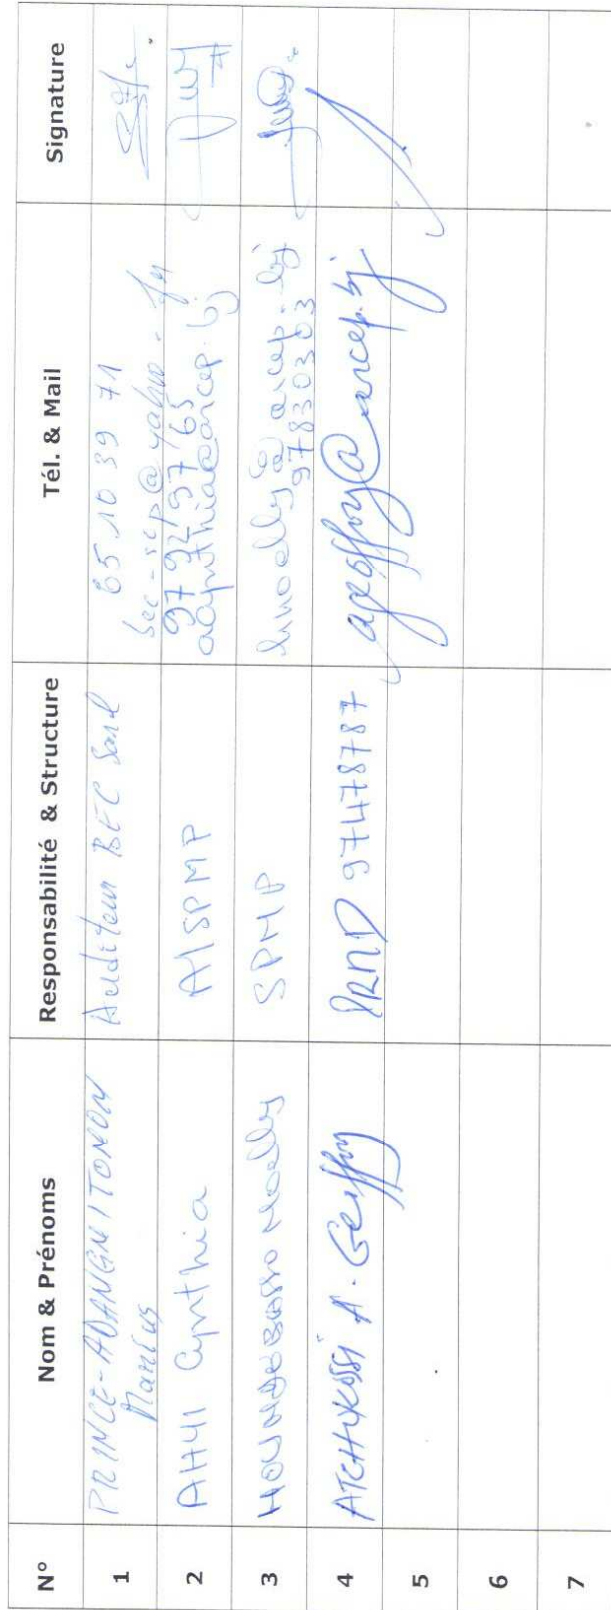 N° Nom & Prénoms Responsabilité & Structure Tél. & Mail Signature
1 PRINCE-ADANGNITONON Auditeur BEC Sarl 65 10 39 71
Narcius bec-scp@yahoo.fr
2 AHYI Cynthia A/SPMP 97 92 97 65
acynthia@arcep.bj
3 HOUNDEGBASSO Noelly SPMP hnoelly@arcep.bj
97830303
4 ATCHIKOSSI A. Geoffroy PRMP 97478787 ageoffroy@arcep.bj
5
6
7